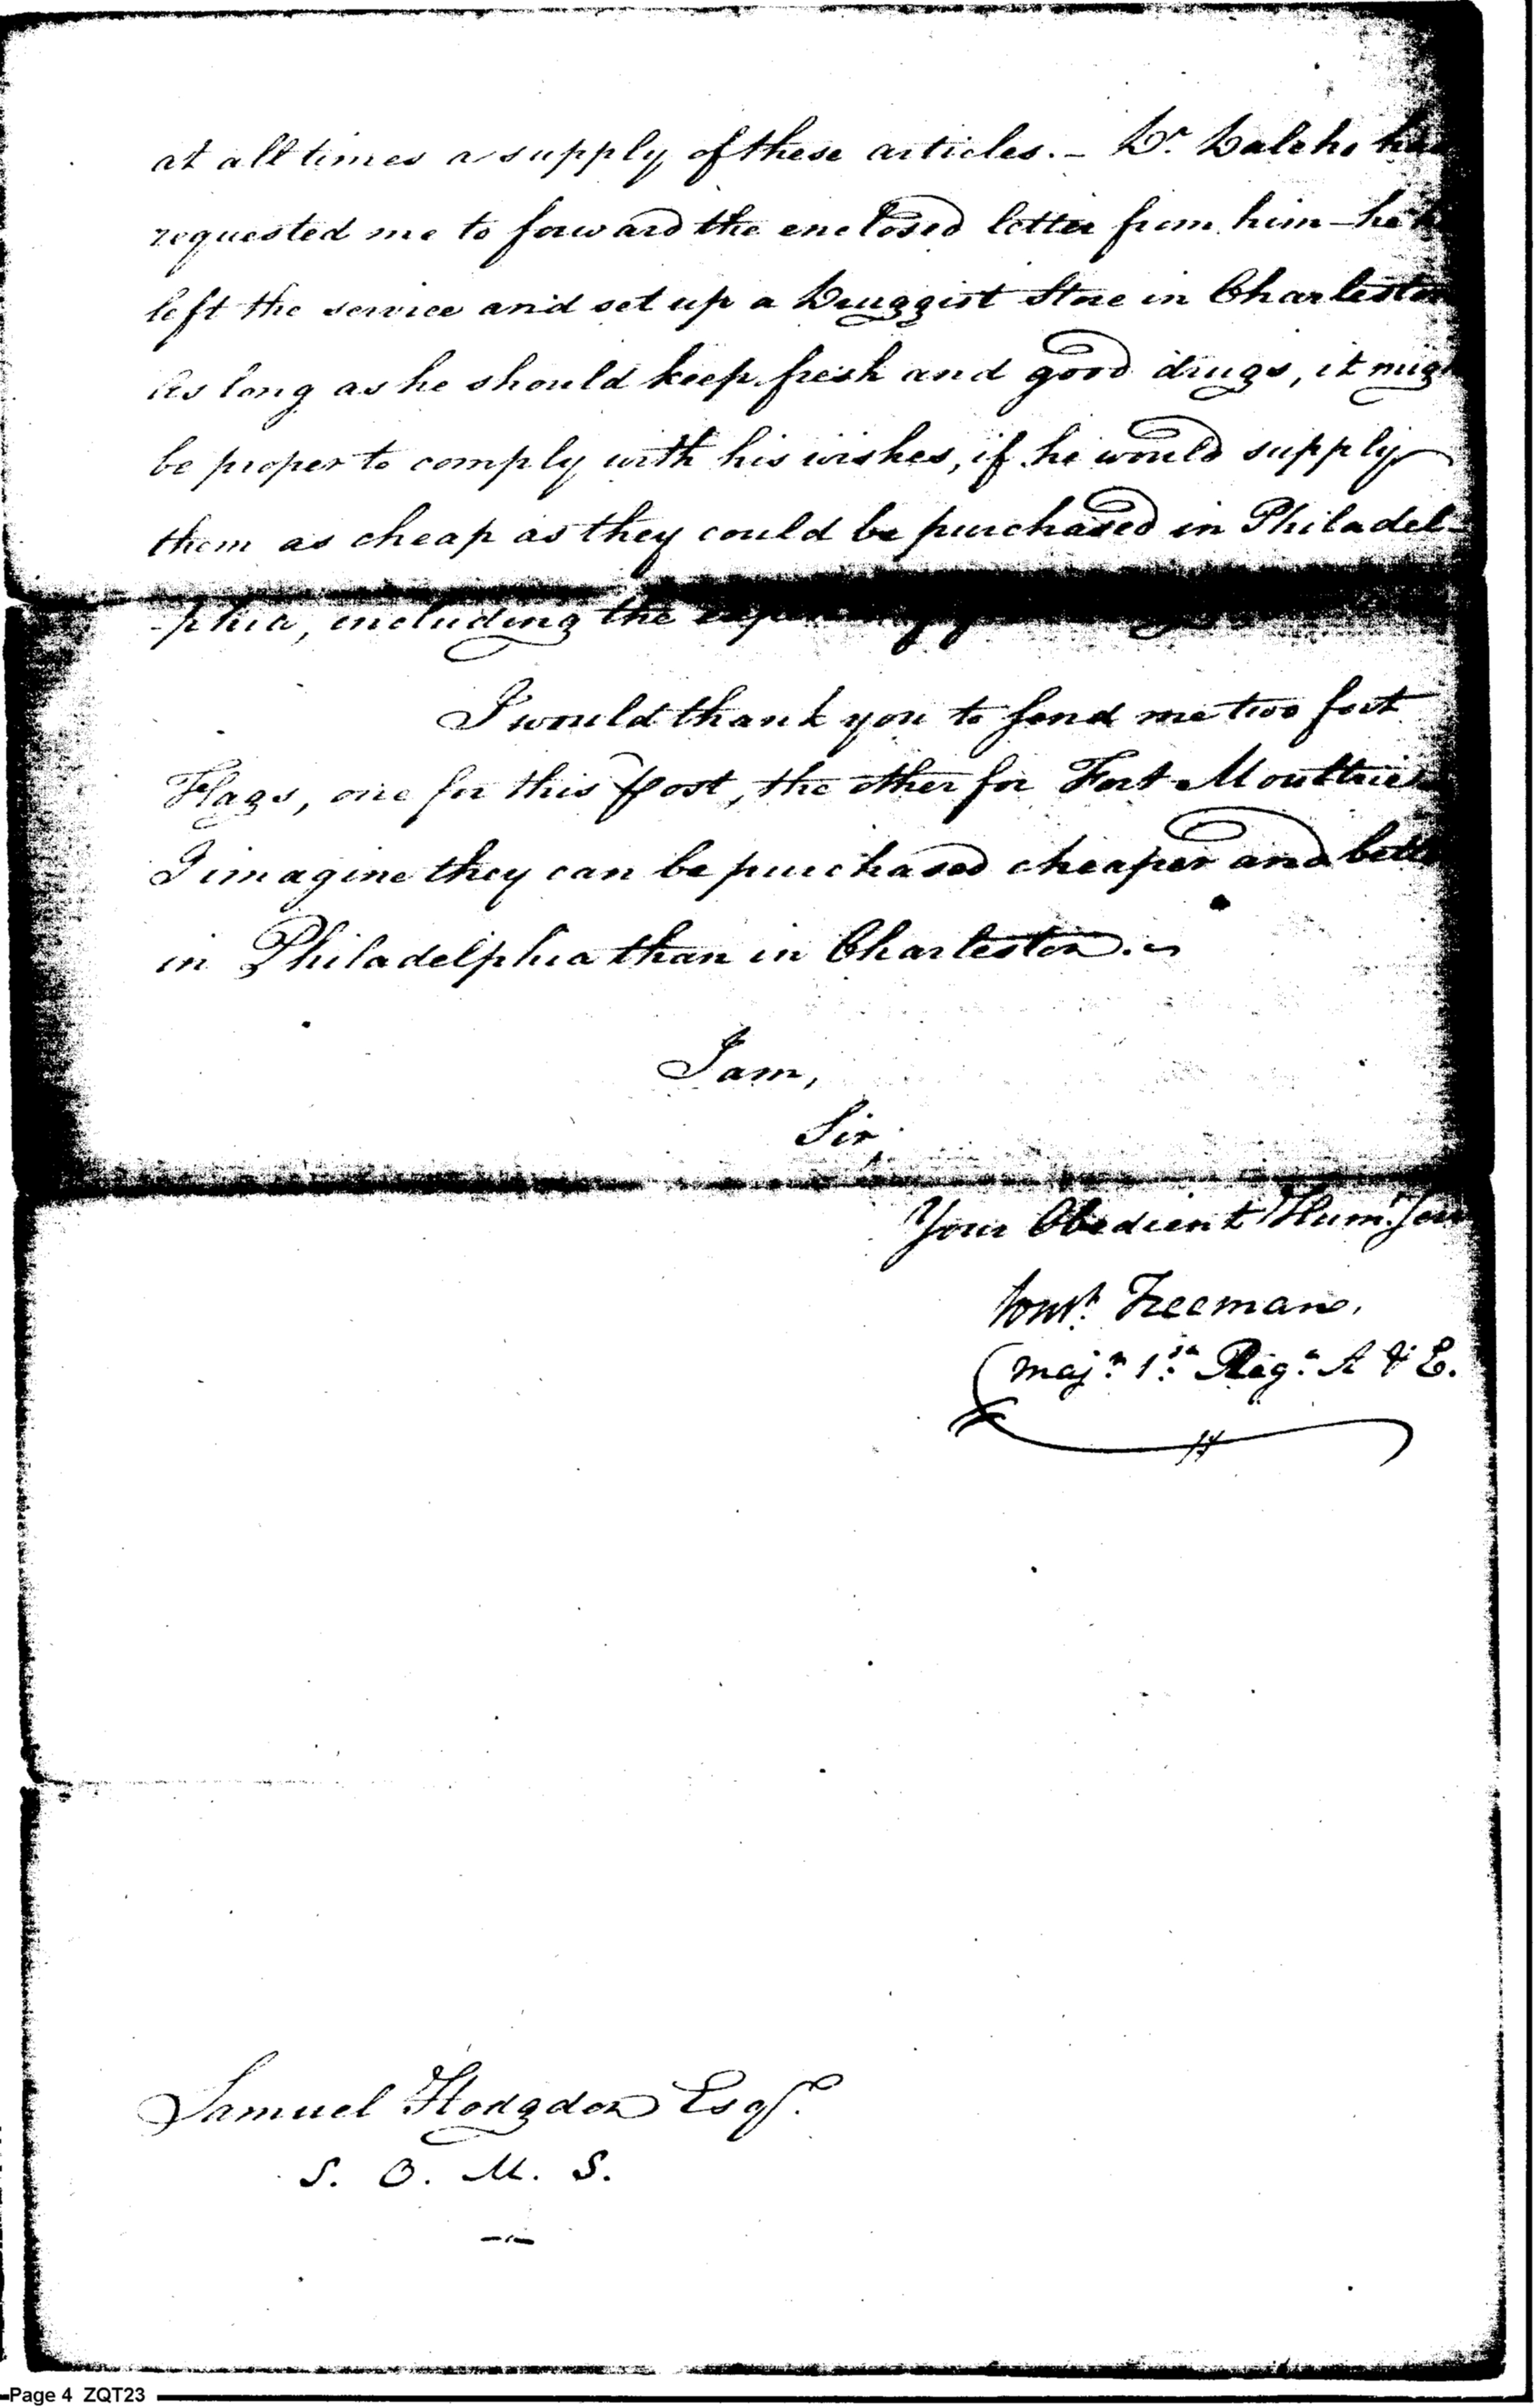 at all times a supply of these articles. – Dr. Dalcho has
requested me to forward the enclosed letter from him – he
left the service and set up a Druggist Store in Charleston
As long as he should keep fresh and good drugs, it might
be proper to comply with his wishes, if he would supply
them as cheap as they could be purchased in Philadel-
-phia, including the
I would thank you to send me two fort
Flags, one for this post, the other for Fort Moultrie
I imagine they can be purchased cheaper and better
in Philadelphia than in Charleston. –
I am,
Sir,
Your Obedient Hum.
Const. Freeman,
Maj.r 1.st Reg.t A & E.
Samuel Hodgdon Esqr.
S. O. M. S.
Page 4 ZQT23